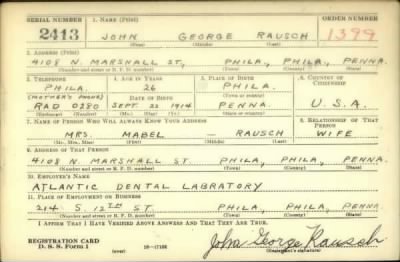 SERIAL NUMBER 1. NAME (Print) ORDER NUMBER
2413 JOHN GEORGE RAUSCH 1399
(First) (Middle) (Last)
2. ADDRESS (Print)
4108 N. MARSHALL ST, PHILA, PHILA, PENNA.
(Number and street or R. F. D. number) (Town) (County) (State)
3. TELEPHONE 4. AGE IN YEARS 5. PLACE OF BIRTH 6. COUNTRY OF CITIZENSHIP
PHILA. 26 PHILA.
(MOTHER'S PHONE) DATE OF BIRTH (Town or county)
RAD 0280 SEPT. 22 1914 PENNA. U.S.A.
(Exchange) (Number) (Mo.) (Day) (Yr.) (State or country)
7. NAME OF PERSON WHO WILL ALWAYS KNOW YOUR ADDRESS 8. RELATIONSHIP OF THAT PERSON
MRS. MABEL — RAUSCH WIFE
(Mr., Mrs., Miss) (First) (Middle) (Last)
9. ADDRESS OF THAT PERSON
4108 N. MARSHALL ST. PHILA, PHILA, PENNA.
(Number and street or R. F. D. number) (Town) (County) (State)
10. EMPLOYER'S NAME
ATLANTIC DENTAL LABRATORY
11. PLACE OF EMPLOYMENT OR BUSINESS
214 S. 12TH ST. PHILA, PHILA, PENNA.
(Number and street or R. F. D. number) (Town) (County) (State)
I AFFIRM THAT I HAVE VERIFIED ABOVE ANSWERS AND THAT THEY ARE TRUE.
REGISTRATION CARD
D. S. S. Form 1 (over) 16—17105 John George Rausch
(Registrant's signature)